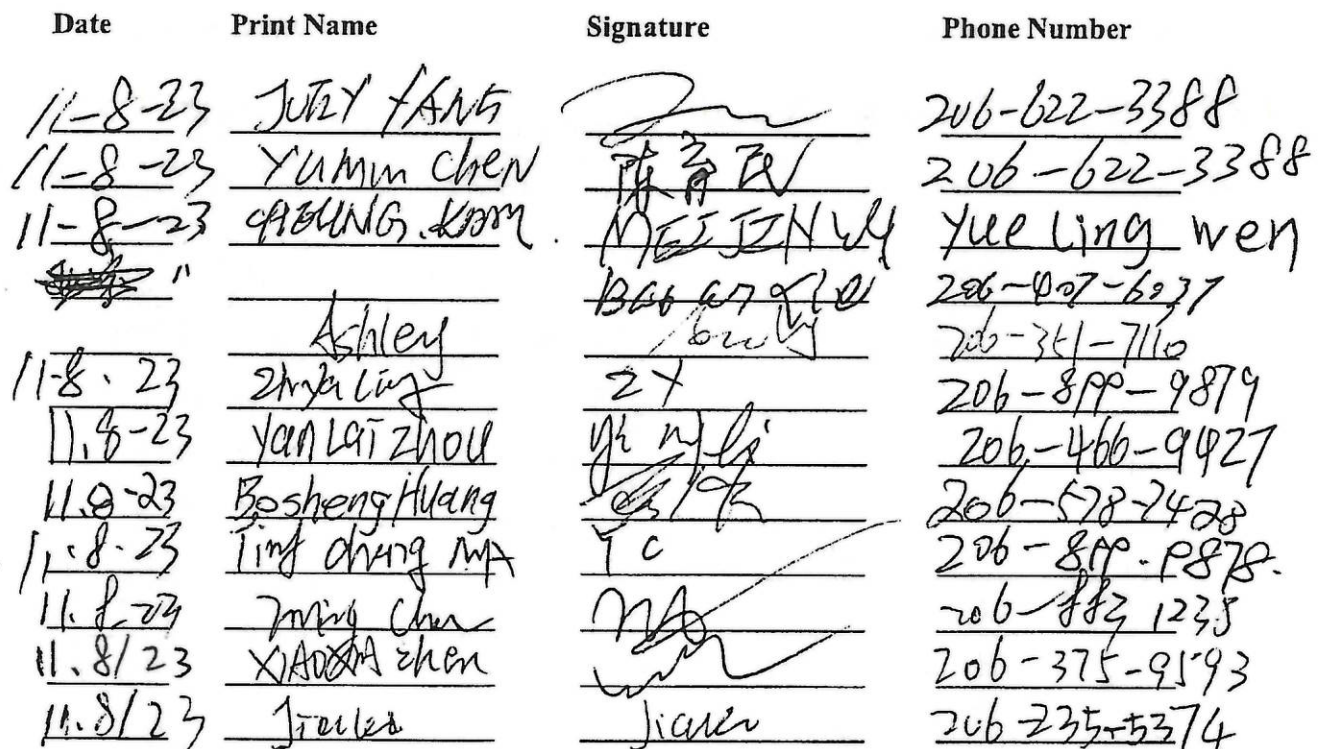 Date Print Name Signature Phone Number
11-8-23 JUDY YANG 206-622-3388
11-8-23 YUMIN CHEN 陳育民 206-622-3388
11-8-23 CHEUNG.KAM. MEI JEN WY Yue Ling wen
" Bao 206-407-6037
Ashley 206-351-7110
11-8.23 ZY 206-899-9879
11.8-23 Yan Lai Zhou 206-466-9427
11.8-23 Bosheng Huang 206-578-7428
11.8.23 Ting MA TC 206-899.9878.
11.8 Chen 206-
11.8/23 XIAOXIA zhen 206-375-9593
11.8/23 206-235-5374